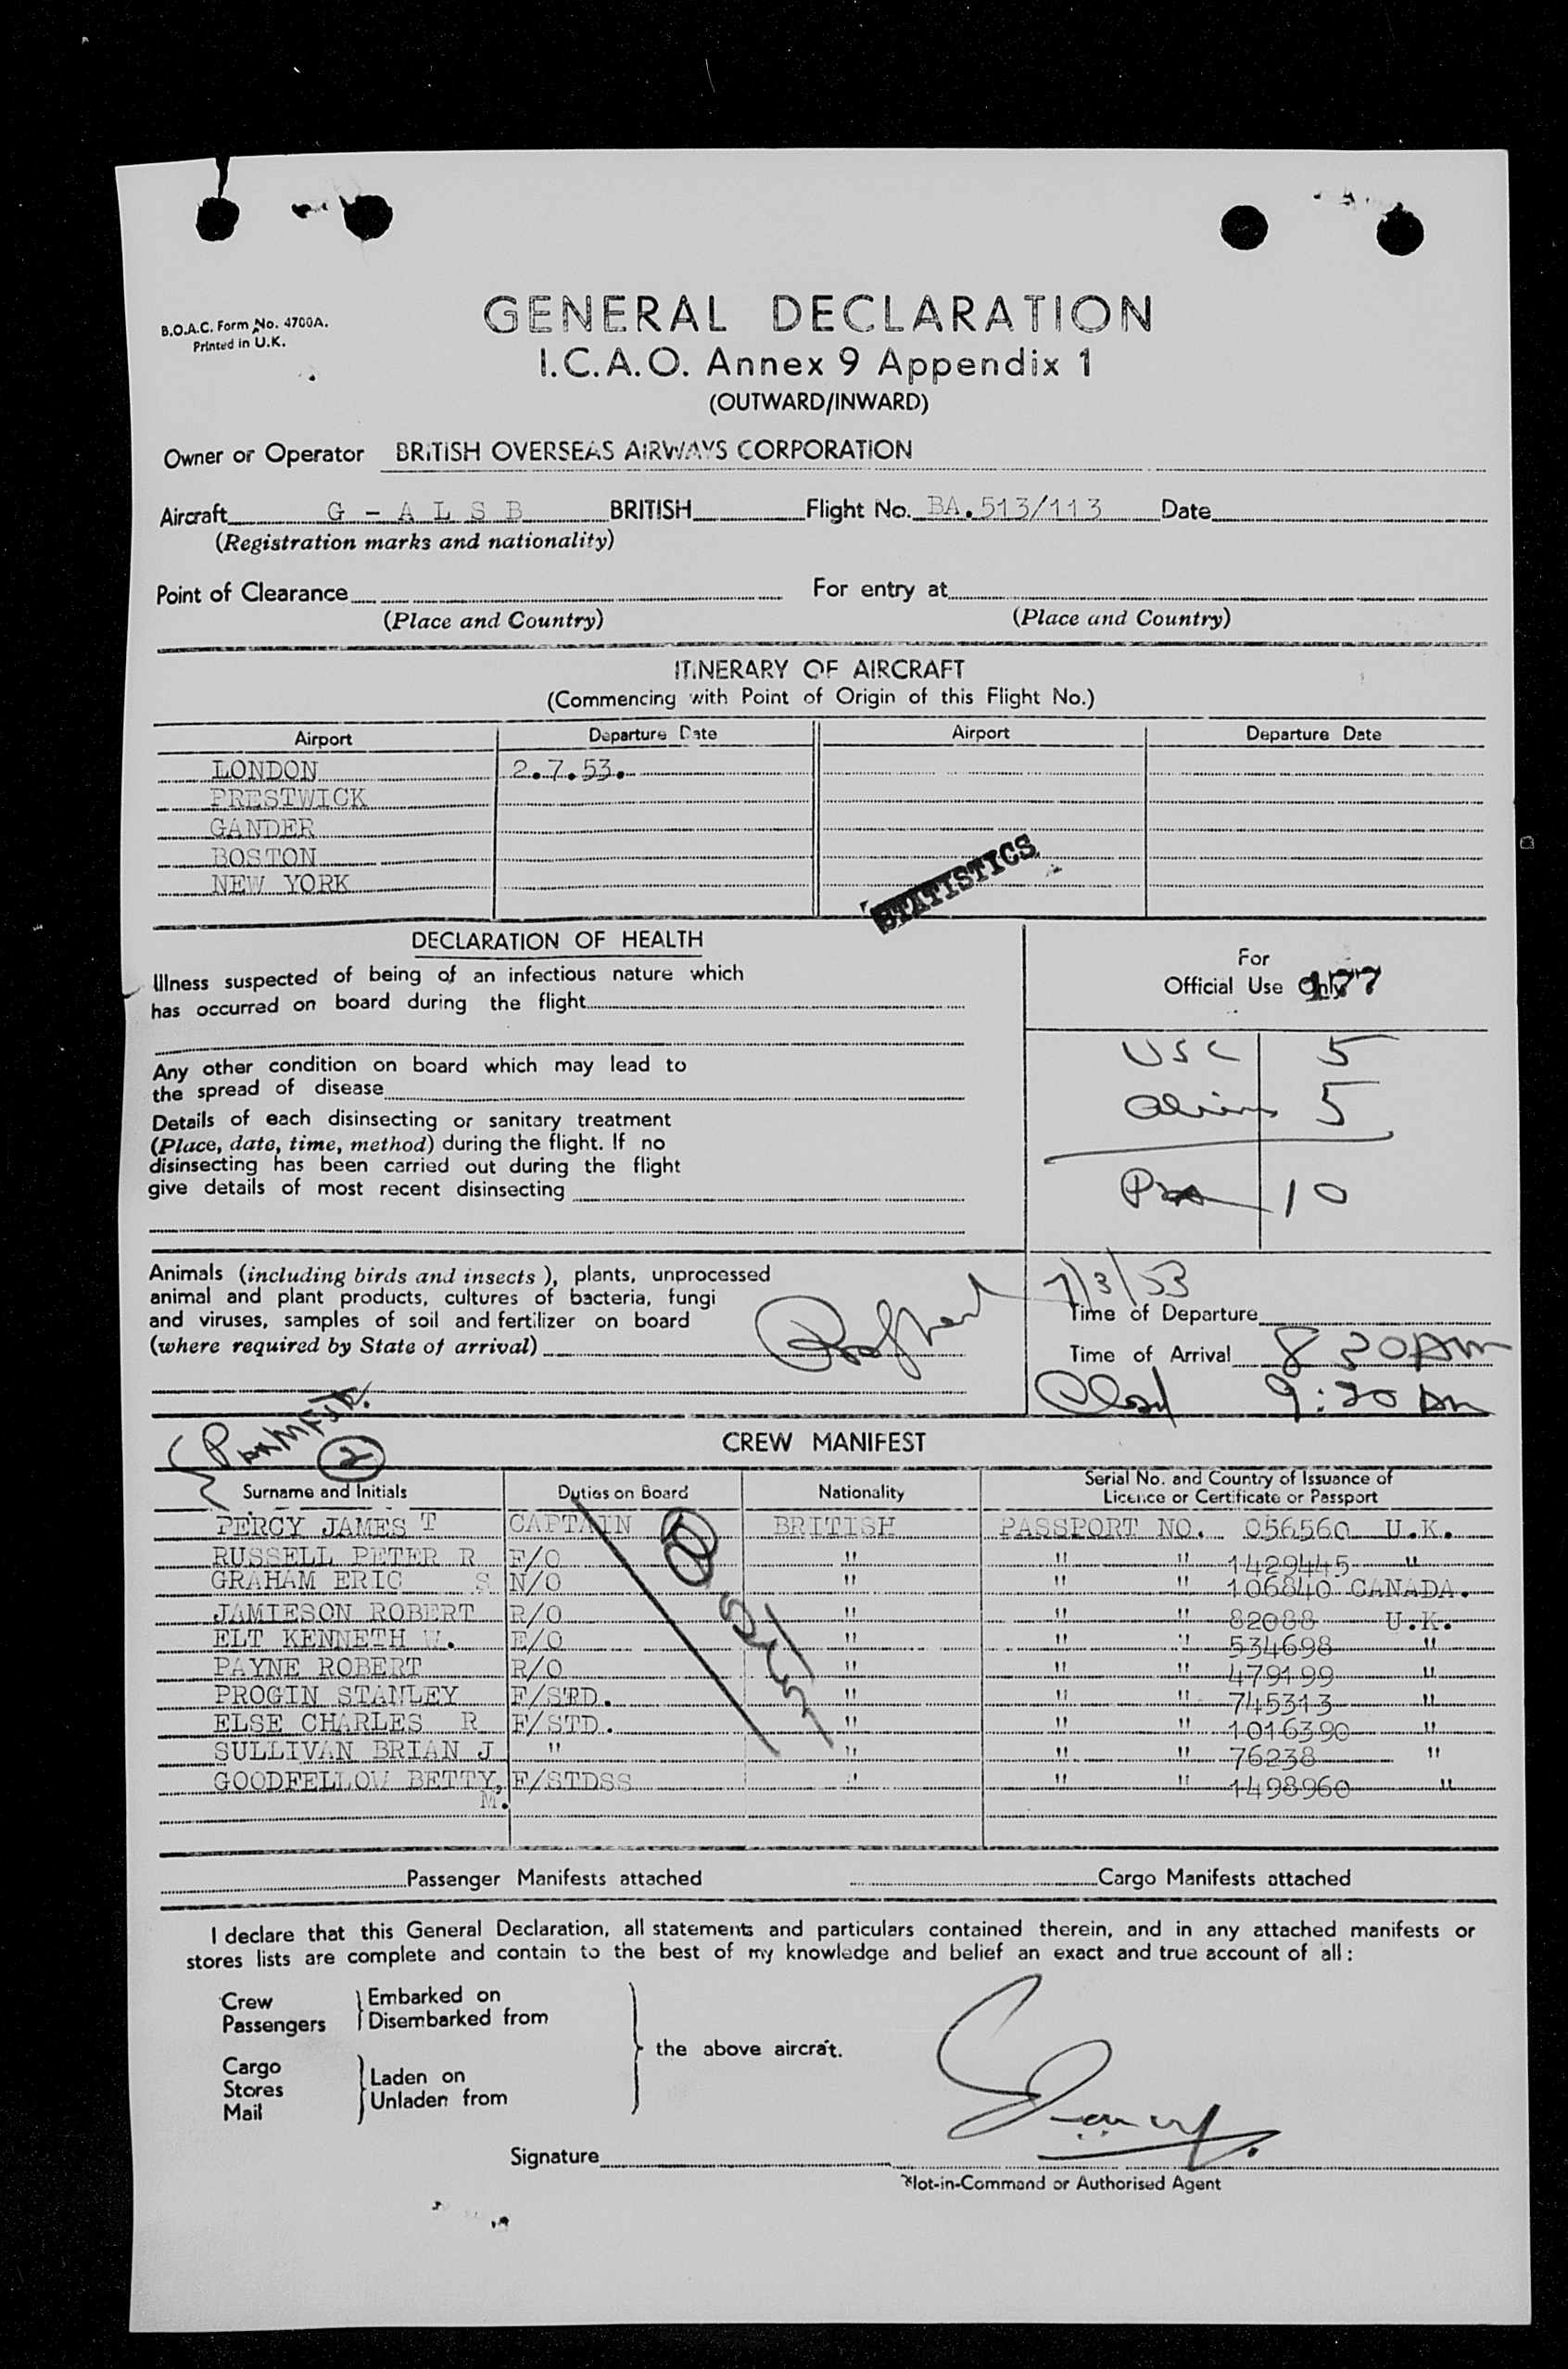 B.O.A.C. Form No. 4700A.
Printed in U.K.
GENERAL DECLARATION
I.C.A.O. Annex 9 Appendix 1
(OUTWARD/INWARD)
Owner or Operator BRITISH OVERSEAS AIRWAYS CORPORATION
Aircraft G - A L S B BRITISH Flight No. BA.513/113 Date
(Registration marks and nationality)
Point of Clearance For entry at
(Place and Country) (Place and Country)
ITINERARY OF AIRCRAFT
(Commencing with Point of Origin of this Flight No.)
Airport Departure Date Airport Departure Date
LONDON 2.7.53.
PRESTWICK
GANDER
BOSTON
NEW YORK
STATISTICS
DECLARATION OF HEALTH
Illness suspected of being of an infectious nature which
has occurred on board during the flight
Any other condition on board which may lead to
the spread of disease
Details of each disinsecting or sanitary treatment
(Place, date, time, method) during the flight. If no
disinsecting has been carried out during the flight
give details of most recent disinsecting
For
Official Use Only 177
USC 5
Aliens 5
10
Animals (including birds and insects), plants, unprocessed
animal and plant products, cultures of bacteria, fungi
and viruses, samples of soil and fertilizer on board
(where required by State of arrival)
7/3/53
Time of Departure
Time of Arrival 8 30 AM
9:30 AM
2
CREW MANIFEST
Surname and Initials Duties on Board Nationality Serial No. and Country of Issuance of
Licence or Certificate or Passport
PERCY JAMES T CAPTAIN BRITISH PASSPORT NO. 056560 U.K.
RUSSELL PETER R F/O " " " 1429445 "
GRAHAM ERIC S N/O " " " 106840 CANADA.
JAMIESON ROBERT R/O " " " 82088 U.K.
ELT KENNETH W. E/O " " " 534698 "
PAYNE ROBERT R/O " " " 479199 "
PROGIN STANLEY F/STD. " " " 745313 "
ELSE CHARLES R F/STD. " " " 1016390 "
SULLIVAN BRIAN J " " " " 76238 "
GOODFELLOW BETTY, F/STDSS " " " 1498960 "
M.
Passenger Manifests attached Cargo Manifests attached
I declare that this General Declaration, all statements and particulars contained therein, and in any attached manifests or
stores lists are complete and contain to the best of my knowledge and belief an exact and true account of all:
Crew Embarked on
Passengers Disembarked from
the above aircraft.
Cargo
Stores Laden on
Mail Unladen from
Signature
Pilot-in-Command or Authorised Agent